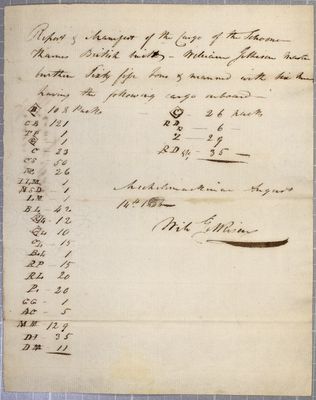 Report & Manifest of the Cargo of the Schooner
Thames British built — William Jefferson Master
burthen Sixty five tons & manned with Six men
having the following cargo onboard —
108 Packs
CB 121
1
1
C - 23
CS - 50
26
LLM - 1
NSD - 1
LM - 1
BL - 42
12
10
15
1
RP - 15
RL 20
P - 20
GG - 1
5
129
35
11
26 packs
6
Z — 29
RD 35
Michilimackinac August
14th
Will Jefferson